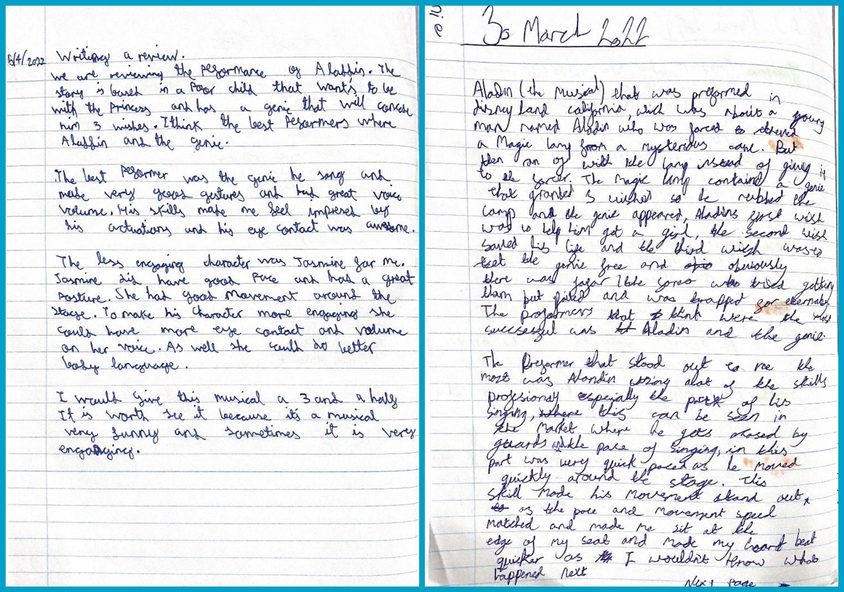 6/4/2022 Writing a review.
We are reviewing the pesormance of Aladdin. The
story is based in a poor child that wants to be
with the Princess and has a genie that will concede
him 3 wishes. I think the best pesormers where
Aladdin and the genie.
The best pesormer was the genie he song and
made very good gestures and had great voice
volume. His skills make me feel impresed by
his actuations and his eye contact was awesome.
The less engaging character was Jasmine for me.
Jasmine did have good face and had a great
Posture. She had good movement around the
stage. To make his character more engaging she
could have more eye contact and volume
on her voice. As well she could do better
body language.
I would give this musical a 3 and a half
It is worth see it because its a musical
very funny and sometimes it is very
engaging.
30 March 2022
Aladin (the musical) that was preformed in
disney land califonia, wich was about a young
man named Aladin who was forced to retrieve
a Magic lamp from a mysterious cave. But
then ran of with the lamp instead of giving it
to the . The magic lamp contained a genie
that granted 3 wishes so he rubbed the
lamp and the genie appeared, Aladins first wish
was to help him get a girl, the second wish
saved his life and the third wish was to
set the genie free and obviously
there was Jafar the who tried getting
them but failed and was trapped for eternaty
The preformers that I think were the most
successful was Aladin and the genie.
The Preformer that stood out to me the
most was Alandin using alot of the skills
profesionaly especially the pitch of his
singing, this can be seen in
the market where he gets chased by
guards the pace of singing, in this
part was very quick paced as he moved
quickly around the stage. This
skill made his movement stand out
as the pace and movement speed
matched and made me sit at the
edge of my seat and made my heart beat
quicker as I wouldn't know what
happened next
Next page